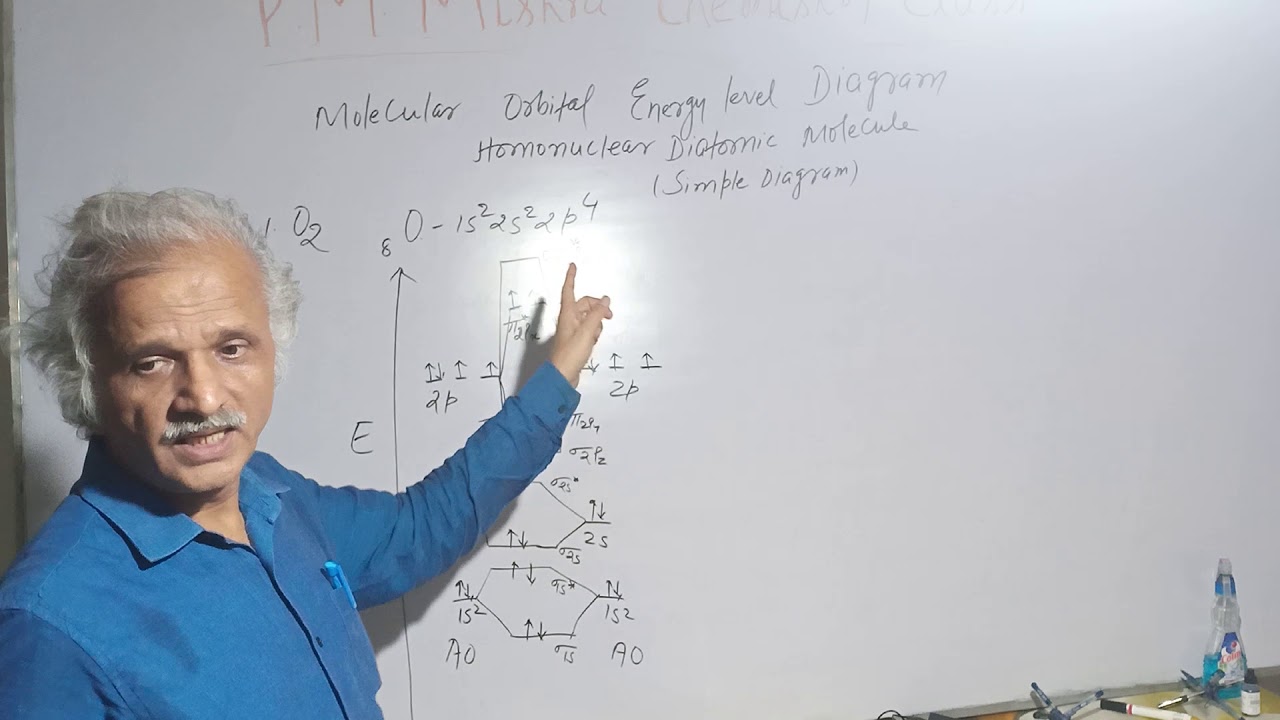 P.M. Mishra Chemistry Class
Molecular Orbital Energy level Diagram
Homonuclear Diatomic Molecule
(Simple Diagram)
1. O₂ ₈O - 1s² 2s² 2p⁴
↑
↑↓ ↑ ↑
↑ ↑
2p
2p
E
π2py
σ2pz
σ2s*
↑↓
2s
↑↓
σ2s
↑↓
↑ ↓
σ1s*
↑↓
1s²
1s2
↑↓
σ1s
AO
AO